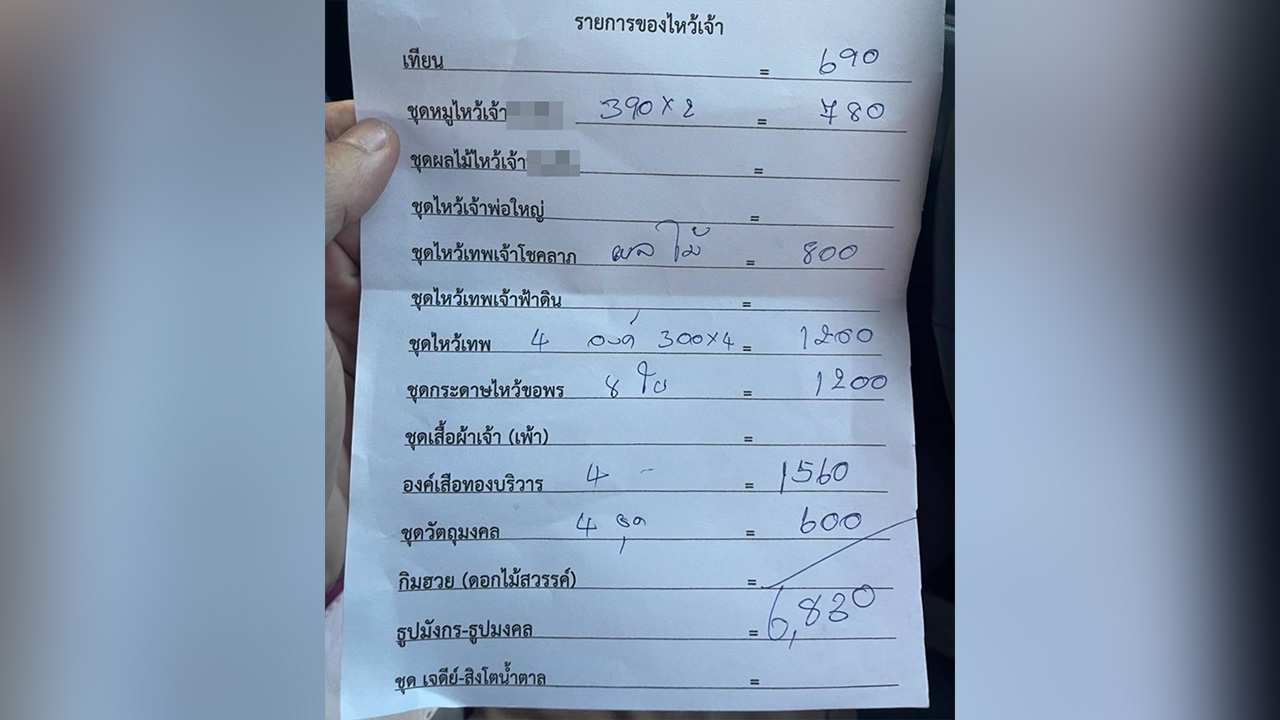 รายการของไหว้เจ้า
เทียน = 690
ชุดหมูไหว้เจ้า 390×2 = 780
ชุดผลไม้ไหว้เจ้า =
ชุดไหว้เจ้าพ่อใหญ่ =
ชุดไหว้เทพเจ้าโชคลาภ ผลไม้ = 800
ชุดไหว้เทพเจ้าฟ้าดิน =
ชุดไหว้เทพ 4 องค์ 300×4 = 1200
ชุดกระดาษไหว้ขอพร 8 ใบ = 1200
ชุดเสื้อผ้าเจ้า (เพ้า) =
องค์เสือทองบริวาร 4 - = 1560
ชุดวัตถุมงคล 4 ชุด = 600
กิมฮวย (ดอกไม้สวรรค์) =
ธูปมังกร-ธูปมงคล = 6,830
ชุด เจดีย์-สิงโตน้ำตาล =